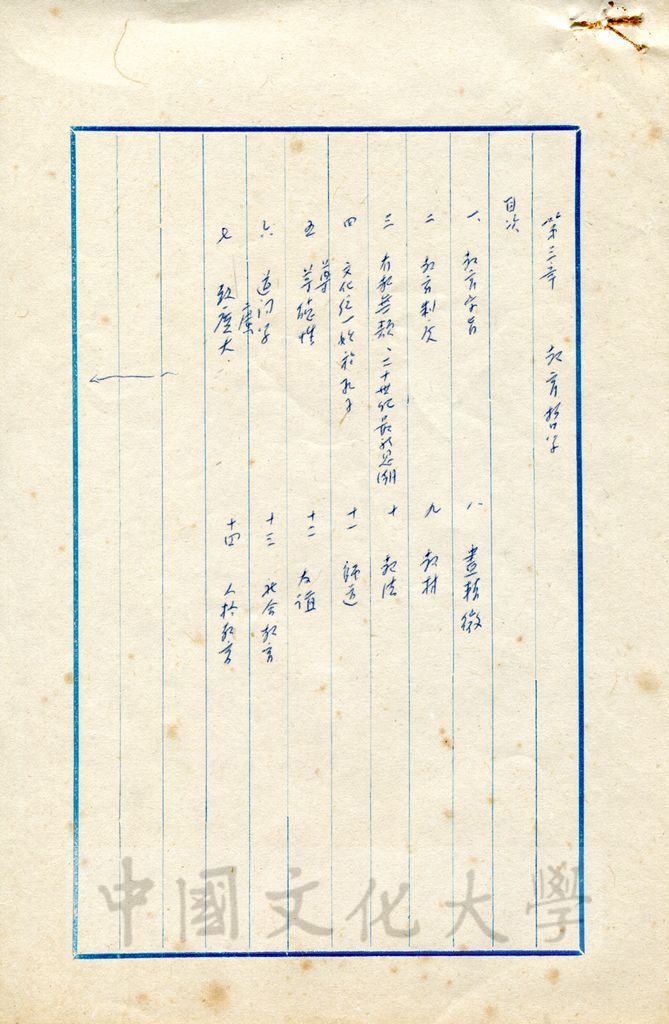 第三章 教育哲学
目次
一 教育宗旨
二 教育制
三 有教無類、二十世紀最新思潮
四 文化統一始於孔子
五 尊德性
六 道问学
七 致廣大
八 盡精微
九 教材
十 教法
十一 師道
十二 友誼
十三 社会教育
十四 人格教育
中國文化大學